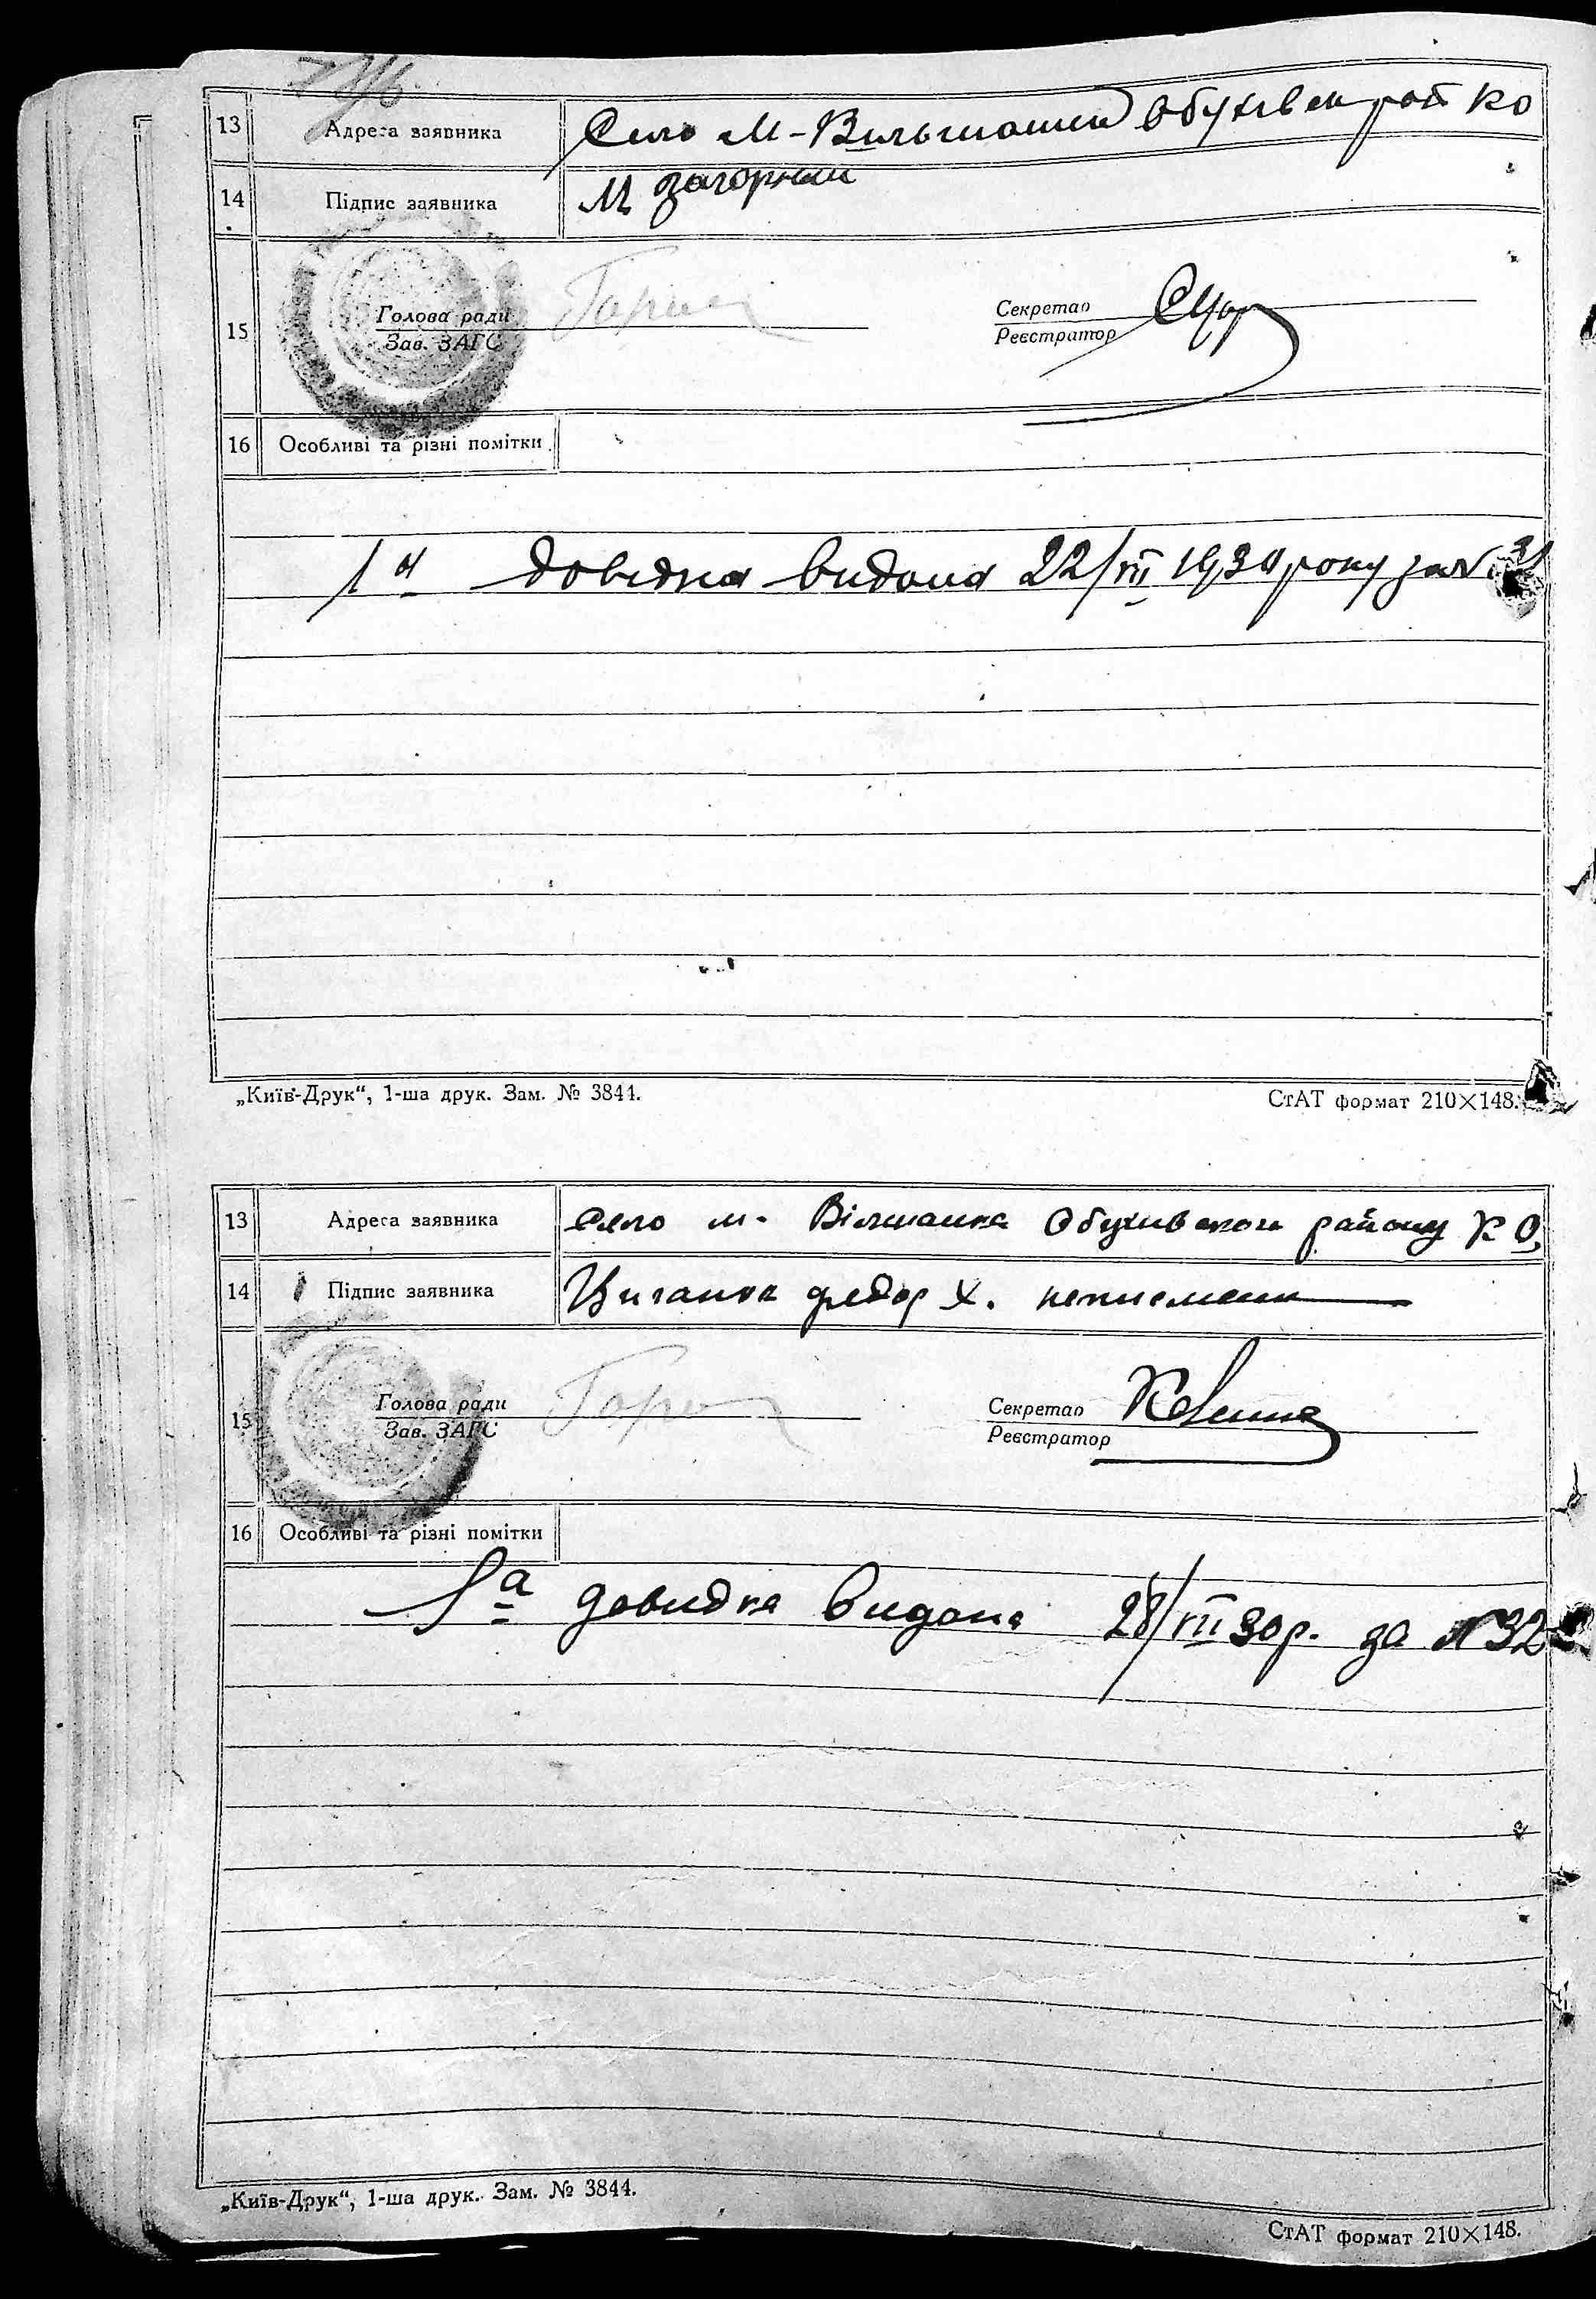 13 Адреса заявника Село М-Вильшанки Обухівськ рай КО
14 Підпис заявника М Загорний
15 Голова ради Зав. ЗАГС Секретар Реєстратор
16 Особливі та різні помітки
1а довідка видана 22/VII 1930 року за № 31
„Київ-Друк“, 1-ша друк. Зам. № 3844. СтАТ формат 210×148.
13 Адреса заявника село м. Вілшанка Обухивського району К О
14 Підпис заявника Циганка федор Х. неписмений
15 Голова ради Зав. ЗАГС Секретар Реєстратор
16 Особливі та різні помітки
1а довидка видана 28/VII 30 р. за № 32
„Київ-Друк“, 1-ша друк. Зам. № 3844. СтАТ формат 210×148.